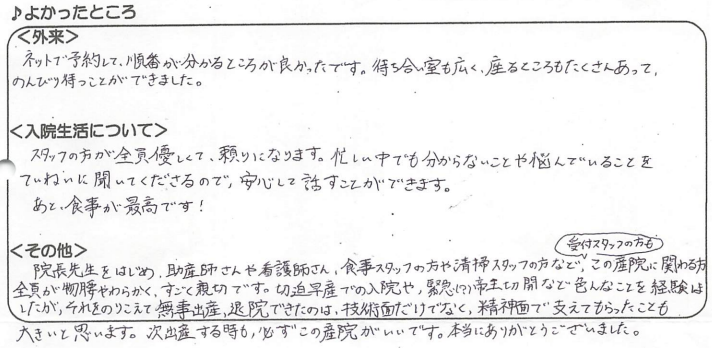 ♪よかったところ
<外来>
ネットで予約して、順番が分かるところが良かったです。待ち合い室も広く、座るところもたくさんあって、
のんびり待つことができました。
<入院生活について>
スタッフの方が全員優しくて、頼りになります。忙しい中でも分からないことや悩んでいることを
ていねいに聞いてくださるので、安心して話すことができます。
あと、食事が最高です!
<その他>
受付スタッフの方も
院長先生をはじめ、助産師さんや看護師さん、食事スタッフの方や清掃スタッフの方など、この産院に関わる方
全員が物腰やわらかく、すごく親切です。切迫早産での入院や、緊急(?)帝王切開など色んなことを経験しま
したが、それをのりこえて無事出産、退院できたのは、技術面だけでなく、精神面で支えてもらったことも
大きいと思います。次出産する時も、必ずこの産院がいいです。本当にありがとうございました。